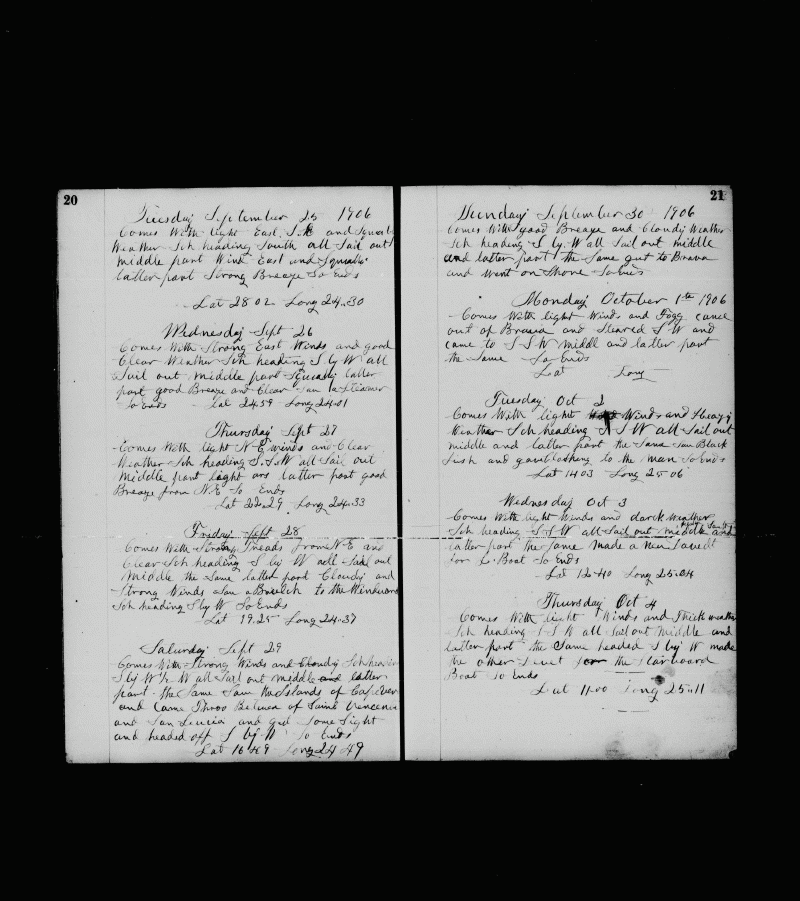 20
Tuesday September 25 1906
Comes With light East S.E and Squally
Weather Sch heading South all Sail out
middle part Wind East and Squally
latter part Strong Breaze So Ends
Lat 28 02 Long 24..30
Wednesday Sept 26
Comes With Strong East Winds and good
Clear Weather Sch heading S by W all
Sail out middle part Squally latter
part good Breaze and Clear Saw a Steamer
So Ends Lat 24 59 Long 24.01
Thursday Sept 27
Comes With light N E winds and Clear
Weather Sch heading S.S.W all Sail out
Middle part light ars latter part good
Breaze from N.E So Ends
Lat 22..29 Long 24..33
Friday Sept 28
Comes With Strong Treads from N.E and
Clear Sch heading S by W all Sail out
Middle the Same latter pard Cloudy and
Strong Winds Saw a to the Windward
Sch heading S by W So Ends
Lat 19.25 Long 24..37
Saturday Sept 29
Comes With Strong Winds and Cloudy Sch
S by W ½ W all Sail out middle and latter
part the Same Saw the Islands of
and Came Throo of Saint
ant San Lucia and got Some Sight
and headed off S by W So Ends
Lat 16 49 Long 24 49
21
Sunday September 30 1906
Comes With good Breaze and Cloudy Weather
Sch heading S by W all Sail out middle
and latter part the Same got to Brava
and Went on Shore So Ends
Monday October 1th 1906
Comes With light Winds and Fogg came
out of Brava and Steared S W and
came to S S W middl and latter part
the Same So Ends
Lat Long
Tuesday Oct 2
Comes With light Winds and Heavy
Weather Sch heading S S W all Sail out
middle and latter part the Same Saw Black
Fish and to the Men So Ends
Lat 14 03 Long 25 06
Wednesday Oct 3
Comes With light Winds and darck weather
Sch heading S S W all Sail out middle and
latter part the Same Made a New
for L. Boat So Ends
Lat 12-40 Long 25.04
Thursday Oct 4
Comes With light Winds and Thick weather
Sch heading S S W all Sail out Middle and
latter part the Same headed S by W made
the other for the Starboard
Boat So Ends
Lat 11-00 Long 25..11